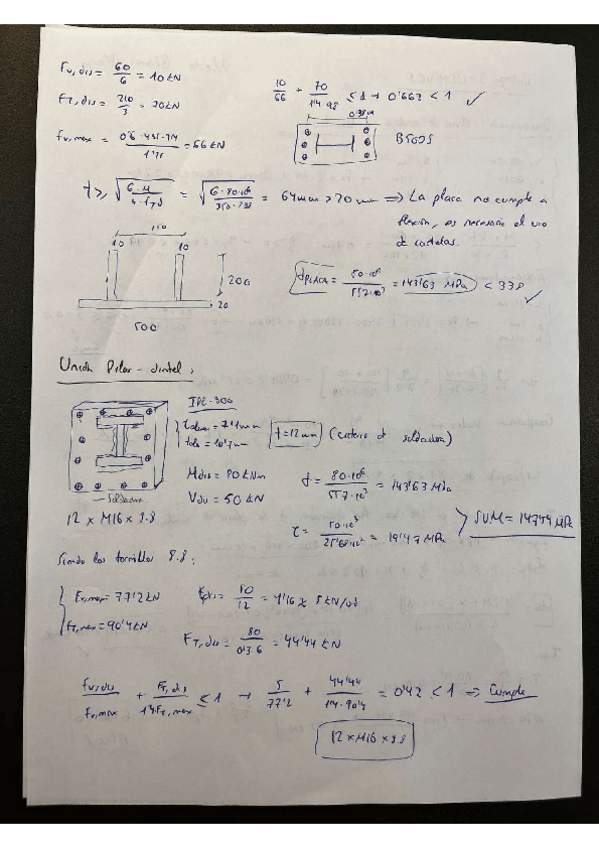 Fv,dis = 60/6 = 10 kN
10/66 + 70/1'4·98 ≤ 1 → 0'662 < 1 ✓
FT,dis = 210/3 = 70 kN
B500S
Fv,max = = 66 kN
t ≥ √ = √ = 64mm > 20 mm ⇒ La placa no cumple a
flexión, es necesario el uso
de cartelas.
10 10
200
20
500
σPLACA = 80·10⁶/557·10³ = 143'63 MPa < 338 ✓
Unión Pilar - dintel:
IPE-300
talma = 7'1mm
tala = 10'7mm
t = 12 mm (criterio de soldadura)
Soldadura
12 x M16 x 8.8
Mdis = 80 kNm
Vdis = 50 kN
σ = 80·10⁶/557·10³ = 143'63 MPa
τ = 50·10³/25'68·10² = 19'47 MPa
SVM = 147'44 MPa
Siendo los tornillos 8.8:
Fv,max = 77'2 kN
FT,max = 90'4 kN
Fv,dis = 50/12 = 4'16 ≈ 5 kN/ud
FT,dis = 80/0'36 = 44'44 kN
Fv,dis/Fv,max + FT,dis/1'4·FT,max ≤ 1 → 5/77'2 + 44'44/1'4·90'4 = 0'42 < 1 ⇒ Cumple
12 x M16 x 8.8